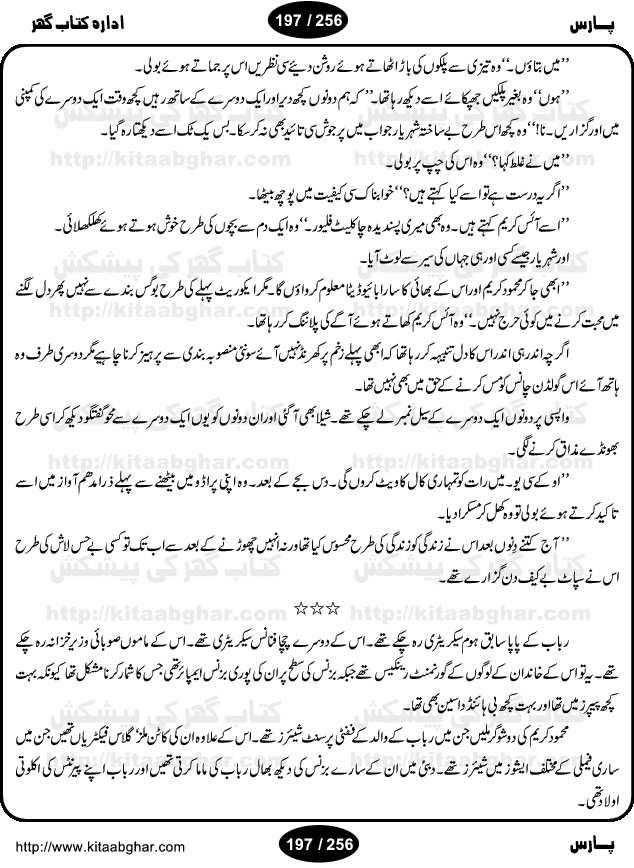 ادارہ کتاب گھر
197 / 256
پارس
’’میں بتاؤں۔‘‘ وہ تیزی سے پلکوں کی باڑ اٹھاتے ہوئے روشن دیئے سی نظریں اس پر جماتے ہوئے بولی۔
’’ہوں‘‘ وہ بغیر پلکیں جھپکائے اسے دیکھ رہا تھا۔’’ کہ ہم دونوں کچھ دیر اور ایک دوسرے کے ساتھ رہیں کچھ وقت ایک دوسرے کی کمپنی
میں اور گزاریں۔ نا!‘‘ وہ کچھ اس طرح بے ساختہ شہریار جواب میں پرجوش سی تائید بھی نہ کر سکا۔ بس یک ٹک اسے دیکھتا رہ گیا۔
’’میں نے غلط کہا؟‘‘ وہ اس کی چپ پر بولی۔
’’اگر یہ درست ہے تو اسے کیا کہتے ہیں؟‘‘ خوابناک سی کیفیت میں پوچھ بیٹھا۔
’’اسے آئس کریم کہتے ہیں۔ وہ بھی میری پسندیدہ چاکلیٹ فلیور۔‘‘ وہ ایک دم سے بچوں کی طرح خوش ہوتے ہوئے کھلکھلائی۔
اور شہریار جیسے کسی اور ہی جہاں کی سیر سے لوٹ آیا۔
’’ابھی جا کر محمود کریم اور اس کے بھائی کا سارا بائیو ڈیٹا معلوم کرواؤں گا۔ مگر ایکوریٹ پہلے کی طرح بوگس بندے سے نہیں پھر دل لگنے
میں محبت کرنے میں کوئی حرج نہیں۔‘‘ وہ آئس کریم کھاتے ہوئے آگے کی پلاننگ کر رہا تھا۔
اگرچہ اندر ہی اندر اس کا دل تنبیہہ کر رہا تھا کہ ابھی پہلے زخم پر کھرنڈ نہیں آئے سو نئی منصوبہ بندی سے پرہیز کرنا چاہیے مگر دوسری طرف وہ
ہاتھ آئے اس گولڈن چانس کو مس کرنے کے حق میں بھی نہیں تھا۔
واپسی پر دونوں ایک دوسرے کے سیل نمبر لے چکے تھے۔ شیلا بھی آ گئی اور ان دونوں کو یوں ایک دوسرے سے محو گفتگو دیکھ کر اسی طرح
بھونڈے مذاق کرنے لگی۔
’’او کے سی یو۔ میں رات کو تمہاری کال کا ویٹ کروں گی۔ دس بجے کے بعد۔ وہ اپنی پراڈو میں بیٹھنے سے پہلے ذرا مدھم آواز میں اسے
تاکید کرتے ہوئے بولی تو وہ کھل کر مسکرا دیا۔
’’آج کتنے دنوں بعد اس نے زندگی کو زندگی کی طرح محسوس کیا تھا ورنہ انہیں چھوڑنے کے بعد سے اب تک تو کسی بے حس لاش کی طرح
اس نے سپاٹ بے کیف دن گزارے تھے۔
☆☆☆
رباب کے پاپا سابق ہوم سیکریٹری رہ چکے تھے۔ اس کے دوسرے چچا فنانس سیکریٹری تھے۔ اس کے ماموں صوبائی وزیر خزانہ رہ چکے
تھے۔ یہ تو اس کے خاندان کے لوگوں کے گورنمنٹ رینکیس تھے جبکہ بزنس کی سطح پر ان کی پوری بزنس ایمپائر تھی جس کا شمار کرنا مشکل تھا کیونکہ بہت
کچھ پیپرز میں تھا اور بہت کچھ بی ہائنڈ دا سین بھی تھا۔
محمود کریم کی دو شوگر ملیں جن میں رباب کے والد کے ففٹی پرسنٹ شیئرز تھے۔ اس کے علاوہ ان کی کاٹن ملز‘ گلاس فیکٹریاں تھیں جن میں
ساری فیملی کے مختلف ایشوز میں شیئرز تھے۔ دبئی میں ان کے سارے بزنس کی دیکھ بھال رباب کی ماما کرتی تھیں اور رباب اپنے پیرنٹس کی اکلوتی
اولاد تھی۔
کتاب گھر کی پیشکش
http://kitaabghar.com
http://www.kitaabghar.com
197 / 256
پارس